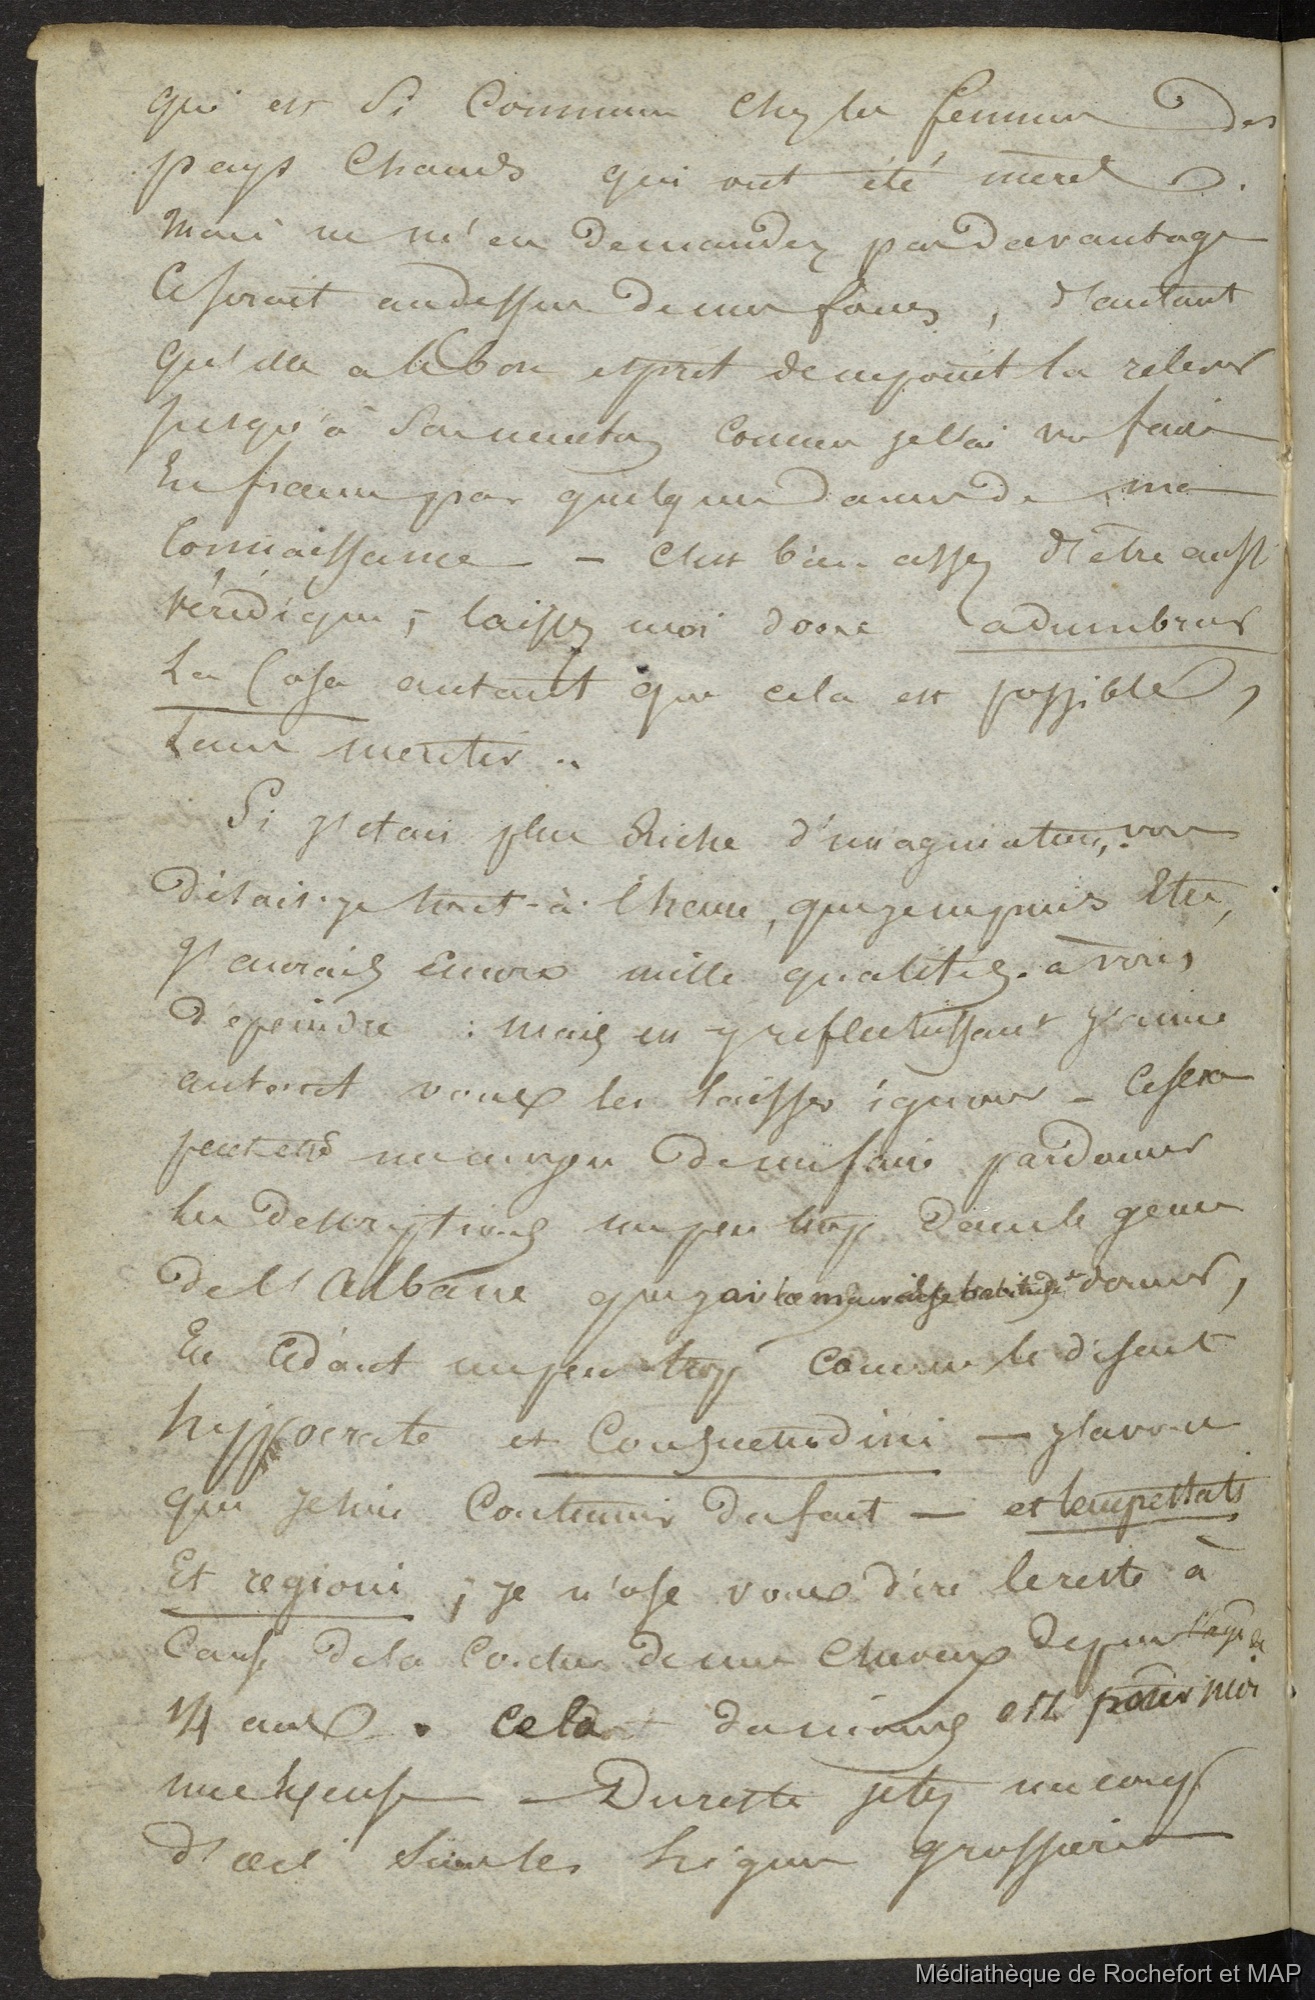 qui est si Commun Chez les femmes des
pays Chauds qui ont été meres.
Mais ne m'en demandez pas davantage
Ce serait audessus de mes forces, d'autant
qu'elle a le bon esprit de ne point la relever
jusqu'à Son menton, comme je l'ai vu faire
En france par quelques dames de ma
Connaissance — — C'est bien assez d'être aussi
véridique ; laissez moi donc adumbrar
La Cosa autant que cela est possible,
Sans mentir ..
Si j'etais plus Riche d'imagination, vous
disais-je tout-à-l'heure, que je ne puis Etre,
j'aurais encore mille qualités à vous
depeindre : Mais en y reflechissant j'aime
autant vous les laisser ignorer — Ce sera
peut etre un moyen de me faire pardonner
les descriptions un peu trop dans le genre
de l'Albane que j'ai la mauvaise habitude de donner,
En Cédant un peu trop comme le disent
hyppocrate et Consuetudini — j'avoue
que je suis Coutumier du fait — et tempestati
Et regioni ; je n'ose vous dire le reste à
Cause de la Couleur de mes Cheveux depuis l'age de
14 ans . cela du moins est pour moi
une Excuse — Du reste jetez un coup
d'œil sur les lignes grossieres